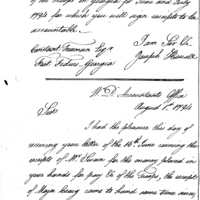 of the troops in Georgia for June and July
1794 for which you will sign receipts to be
accountable.
Constant Freeman Esqr
Fort Fidius, Georgia
I am Sir &c
Joseph Howell
W.D. Accountants Office
August 1st 1794
Sir
I had the pleasure this day of
receiving your letter of the 16th June covering the
receipts of Mr Swan for the money placed in
your hands for pay &c of the Troops, the receipts
of Major Craig came to hand some time since,